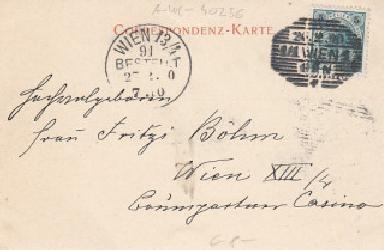 A-WK-40256
CORRESPONDENZ-KARTE.
WIEN 13/1
91
BESTELLT
7.10
WIEN
Hochwolgeboren
Frau Fritzi Böhm
Wien XIII/4
Baumgartner Casino
6 8-